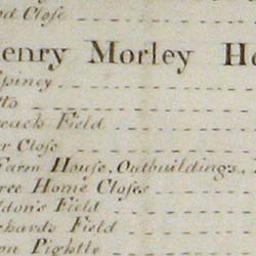 Close
enry Morley
Spiney
to
each Field
r Close
Farm House, Outbuildings,
ree Home Closes
don's Field
chard's Field
on Pightle